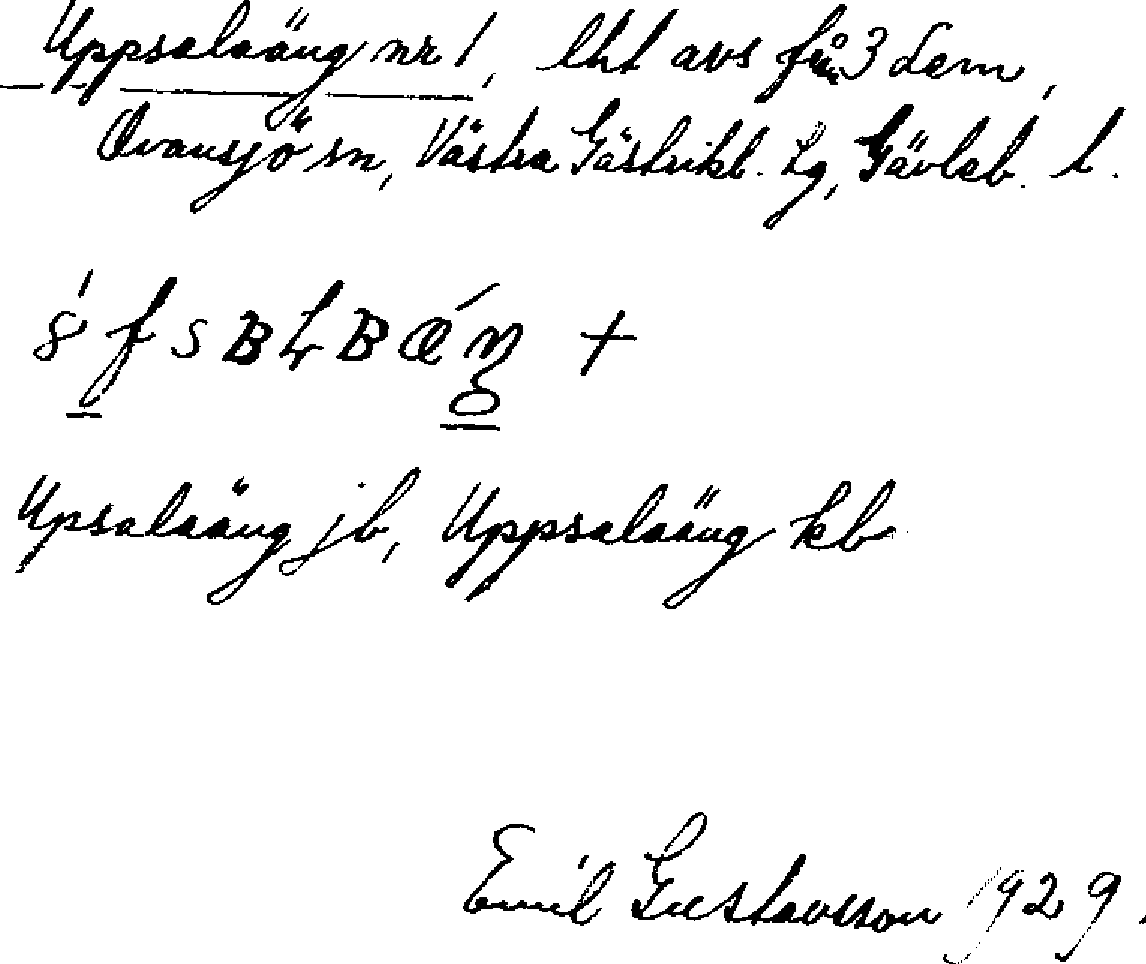 Uppsalaäng nr 1, lht avs från 3 Lem,
Ovansjö sn, Västra Gästrikl. tg, Gävleb. l.
Upsalaäng jb, Uppsalaäng kb
Emil Gustavsson 1929.